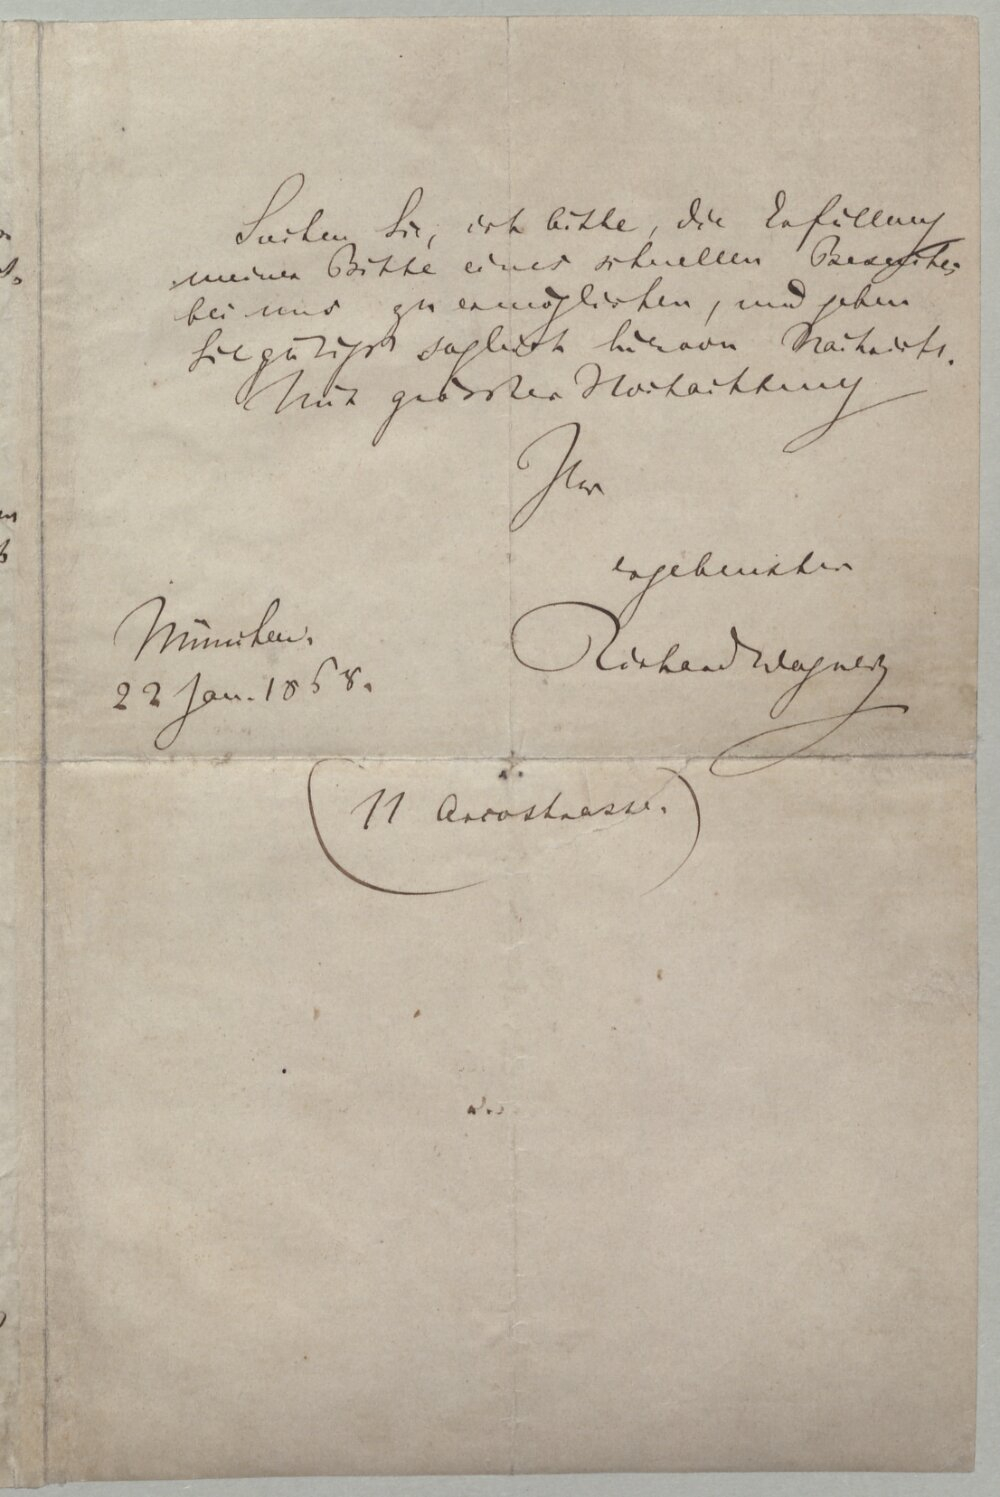 Suchen Sie, ich bitte, die Erfüllung
meiner Bitte eines schnellen Besuches
bei uns zu ermöglichen, und geben
Sie gütigst sogleich hiervon Nachricht.
Mit grösster Hochachtung
Ihr
ergebenster
Richard Wagner
München.
22 Jan. 1868.
(11 Arcostrasse.)